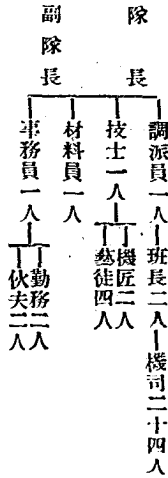 隊長
副隊長
調派員一人
班長二人
機司二十四人
技士一人
機匠二人
藝徒四人
材料員一人
事務員一人
勤務二人
伙夫二人